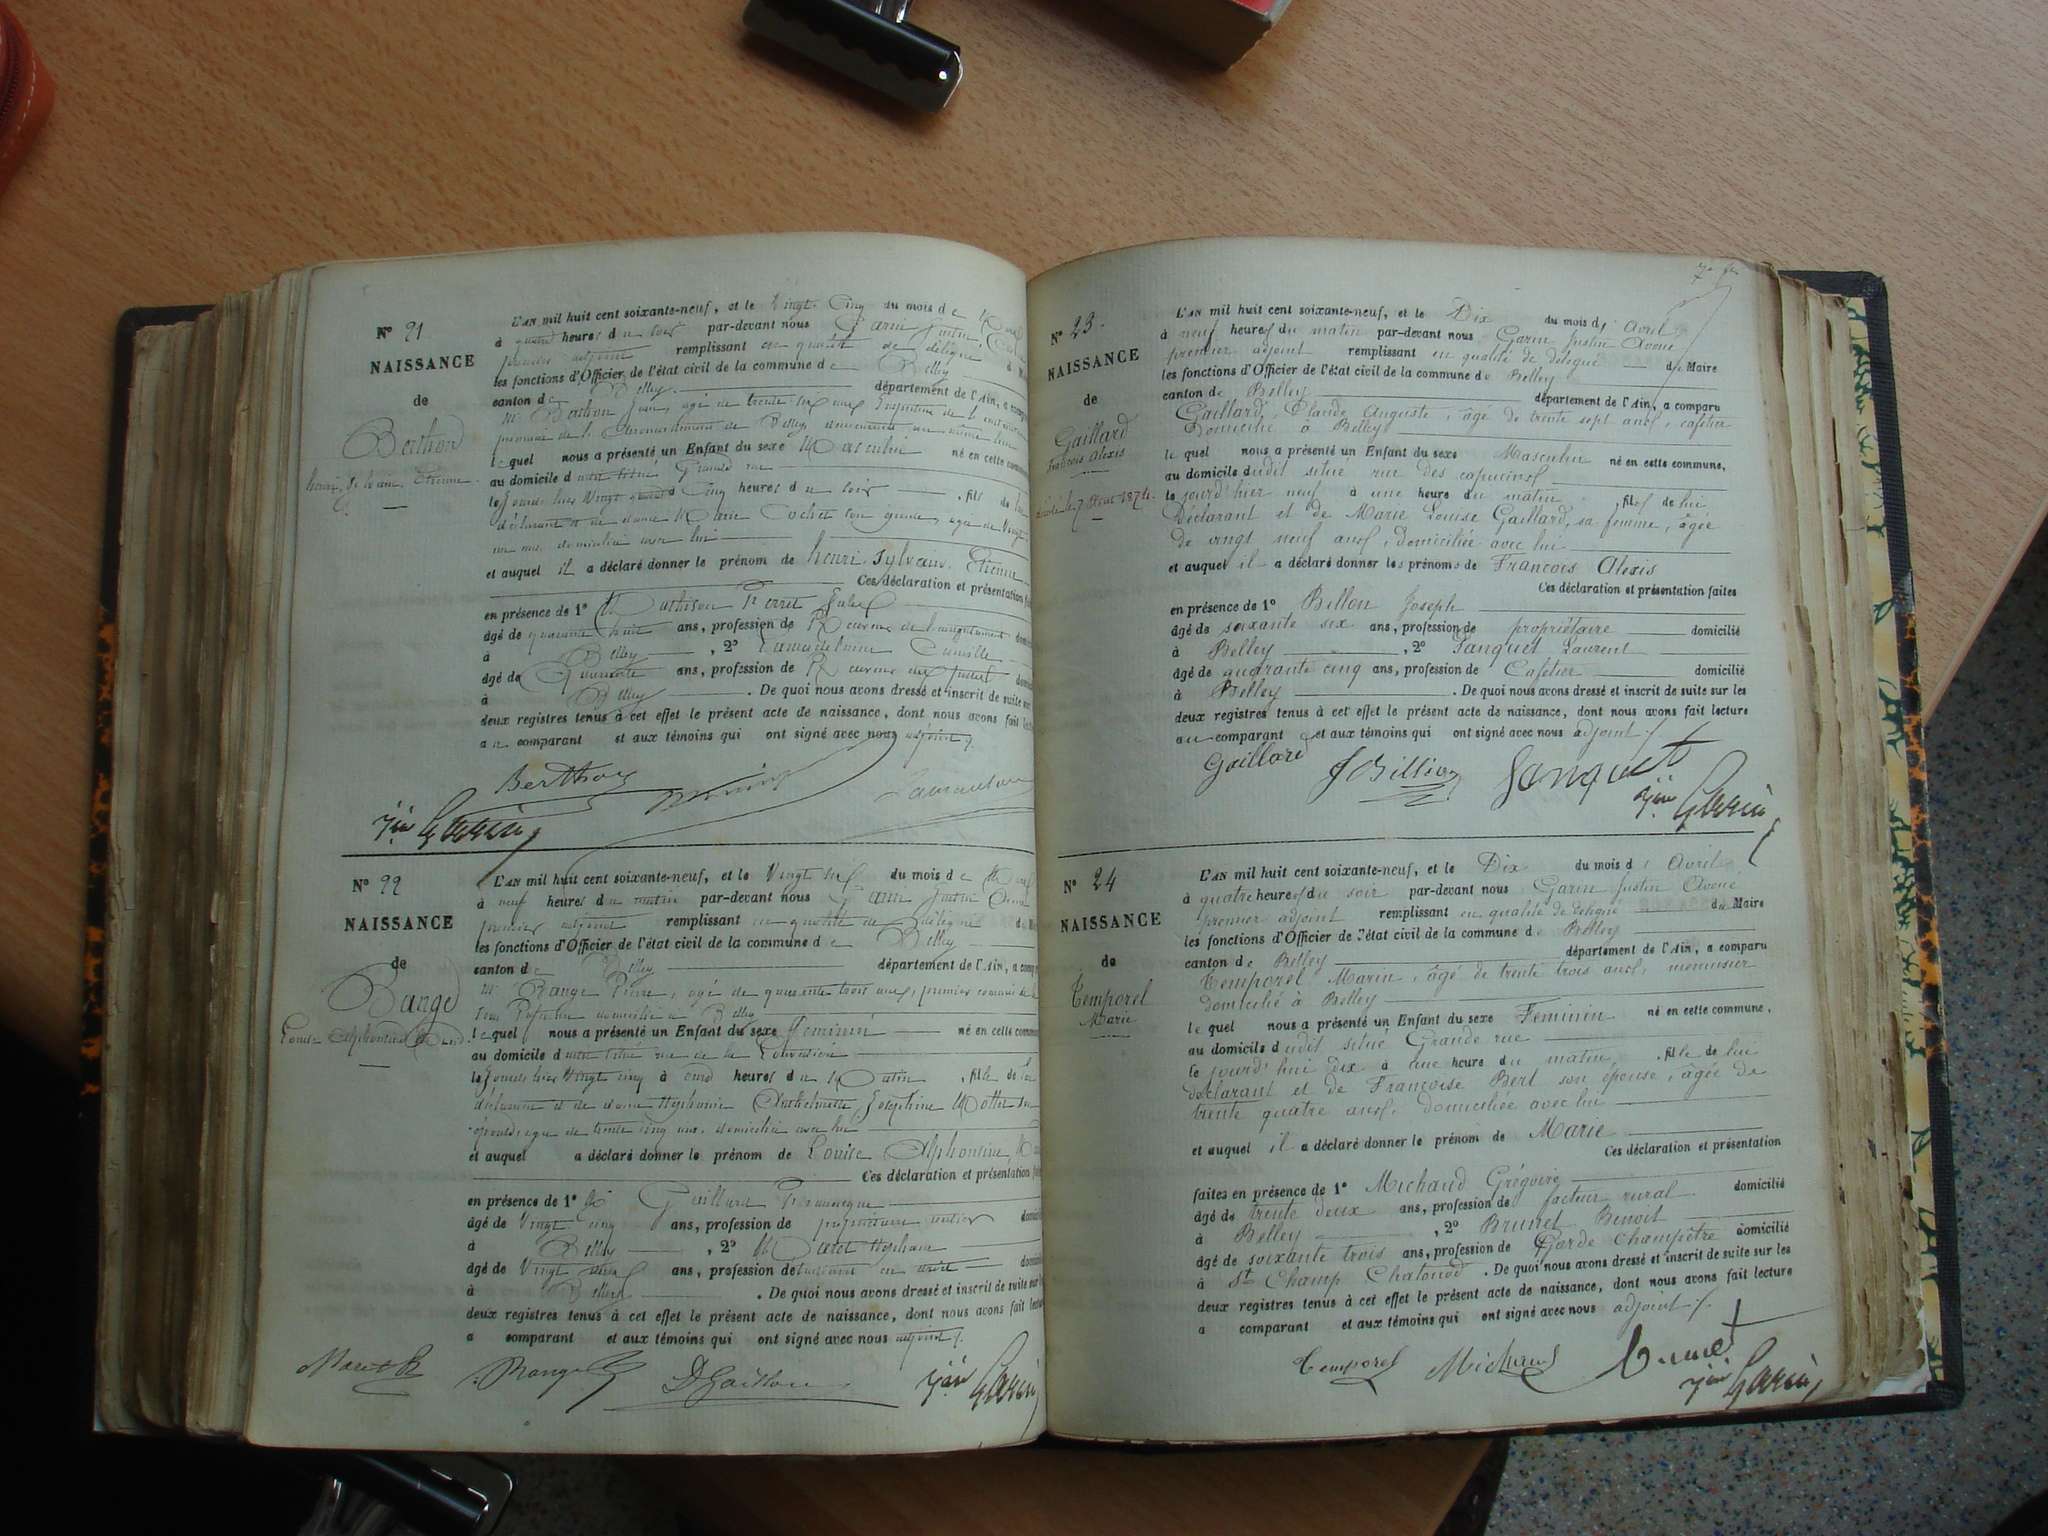 N° 21
NAISSANCE
de
Berthod
henri, Sylvain, Etienne
L'AN mil huit cent soixante-neuf, et le Vingt Cinq du mois de
à quatre heures du soir par-devant nous Garin Justin,
premier adjoint remplissant en qualité de délégué
les fonctions d'Officier de l'état civil de la commune de Belley
canton de Belley département de l'Ain, a
primaire de l' arrondissement de Belley,
lequel nous a présenté un Enfant du sexe Masculin né en cette
au domicile Grande rue
le Cinq heures du soir , fils de
déclarant et de dame Marie son épouse, âgée de Vingt
un ans, domiciliée avec lui
et auquel il a déclaré donner le prénom de henri, Sylvain, Etienne
Ces déclaration et présentation
en présence de 1°
âgé de quarante huit ans, profession de
à Belley , 2°
âgé de Quarante ans, profession de
à Belley . De quoi nous avons dressé et inscrit de suite sur
deux registres tenus à cet effet le présent acte de naissance, dont nous avons fait
au comparant et aux témoins qui ont signé avec nous adjoint
Garin
N° 22
NAISSANCE
de
Range
L'AN mil huit cent soixante-neuf, et le Vingt six du mois de
à neuf heures du matin par-devant nous Garin Justin
premier adjoint remplissant en qualité de délégué
les fonctions d'Officier de l'état civil de la commune de Belley
canton de Belley département de l'Ain, a
Mr Range Pierre, âgé de quarante trois ans, premier
domicilié à Belley
lequel nous a présenté un Enfant du sexe Feminin né en cette
au domicile rue de la
le Vingt cinq à heures du Matin , fille de lui
déclarant et de dame Joséphine
épouse, âgée de trente cinq ans, domiciliée avec lui
et auquel a déclaré donner le prénom de Louise Alphonsine
Ces déclaration et présentation
en présence de 1°
âgé de Vingt cinq ans, profession de propriétaire rentier
à Belley , 2°
âgé de Vingt ans, profession de étudiant en droit
à Belley . De quoi nous avons dressé et inscrit de suite sur
deux registres tenus à cet effet le présent acte de naissance, dont nous avons fait
a comparant et aux témoins qui ont signé avec nous adjoint
Garin
N° 23
NAISSANCE
de
Gaillard
François Alexis
L'AN mil huit cent soixante-neuf, et le Dix du mois d' Avril
à neuf heures du matin par-devant nous Garin Justin Avoué
premier adjoint remplissant en qualité de délégué du Maire
les fonctions d'Officier de l'état civil de la commune de Belley
canton de Belley département de l'Ain, a comparu
Gaillard, Claude Auguste, âgé de trente sept ans, cafetier
domicilié à Belley
lequel nous a présenté un Enfant du sexe Masculin né en cette commune,
au domicile dudit situé rue des capucins
le jourd'hier neuf à une heure du matin , fils de lui
Déclarant et de Marie Louise Gaillard, sa femme, âgée
de vingt neuf ans, domiciliée avec lui
et auquel il a déclaré donner les prénoms de François Alexis
Ces déclaration et présentation faites
en présence de 1° Billon Joseph
âgé de soixante six ans, profession de propriétaire domicilié
à Belley , 2° Janquet Laurent
âgé de quarante cinq ans, profession de Cafetier domicilié
à Belley . De quoi nous avons dressé et inscrit de suite sur les
deux registres tenus à cet effet le présent acte de naissance, dont nous avons fait lecture
au comparant et aux témoins qui ont signé avec nous adjoint
Gaillard J Billion Janquet
Garin
N° 24
NAISSANCE
de
Temporel
Marie
L'AN mil huit cent soixante-neuf, et le Dix du mois d' Avril
à quatre heures du soir par-devant nous Garin Justin Avoué
premier adjoint remplissant en qualité de délégué du Maire
les fonctions d'Officier de l'état civil de la commune de Belley
canton de Belley département de l'Ain, a comparu
Temporel Marin, âgé de trente trois ans, menuisier
domicilié à Belley
lequel nous a présenté un Enfant du sexe Feminin né en cette commune,
au domicile dudit situé Grande rue
le jourd'hui dix à une heure du matin , fille de lui
déclarant et de Françoise Bert son épouse, âgée de
trente quatre ans, domiciliée avec lui
et auquel il a déclaré donner le prénom de Marie
Ces déclaration et présentation
faites en présence de 1° Michaud Grégoire
âgé de trente deux ans, profession de facteur rural domicilié
à Belley , 2° Brunet Benoit
âgé de soixante trois ans, profession de Garde Champêtre domicilié
à St Champ Chatonod . De quoi nous avons dressé et inscrit de suite sur les
deux registres tenus à cet effet le présent acte de naissance, dont nous avons fait lecture
a comparant et aux témoins qui ont signé avec nous adjoint
Temporel Michaud Brunet
Garin